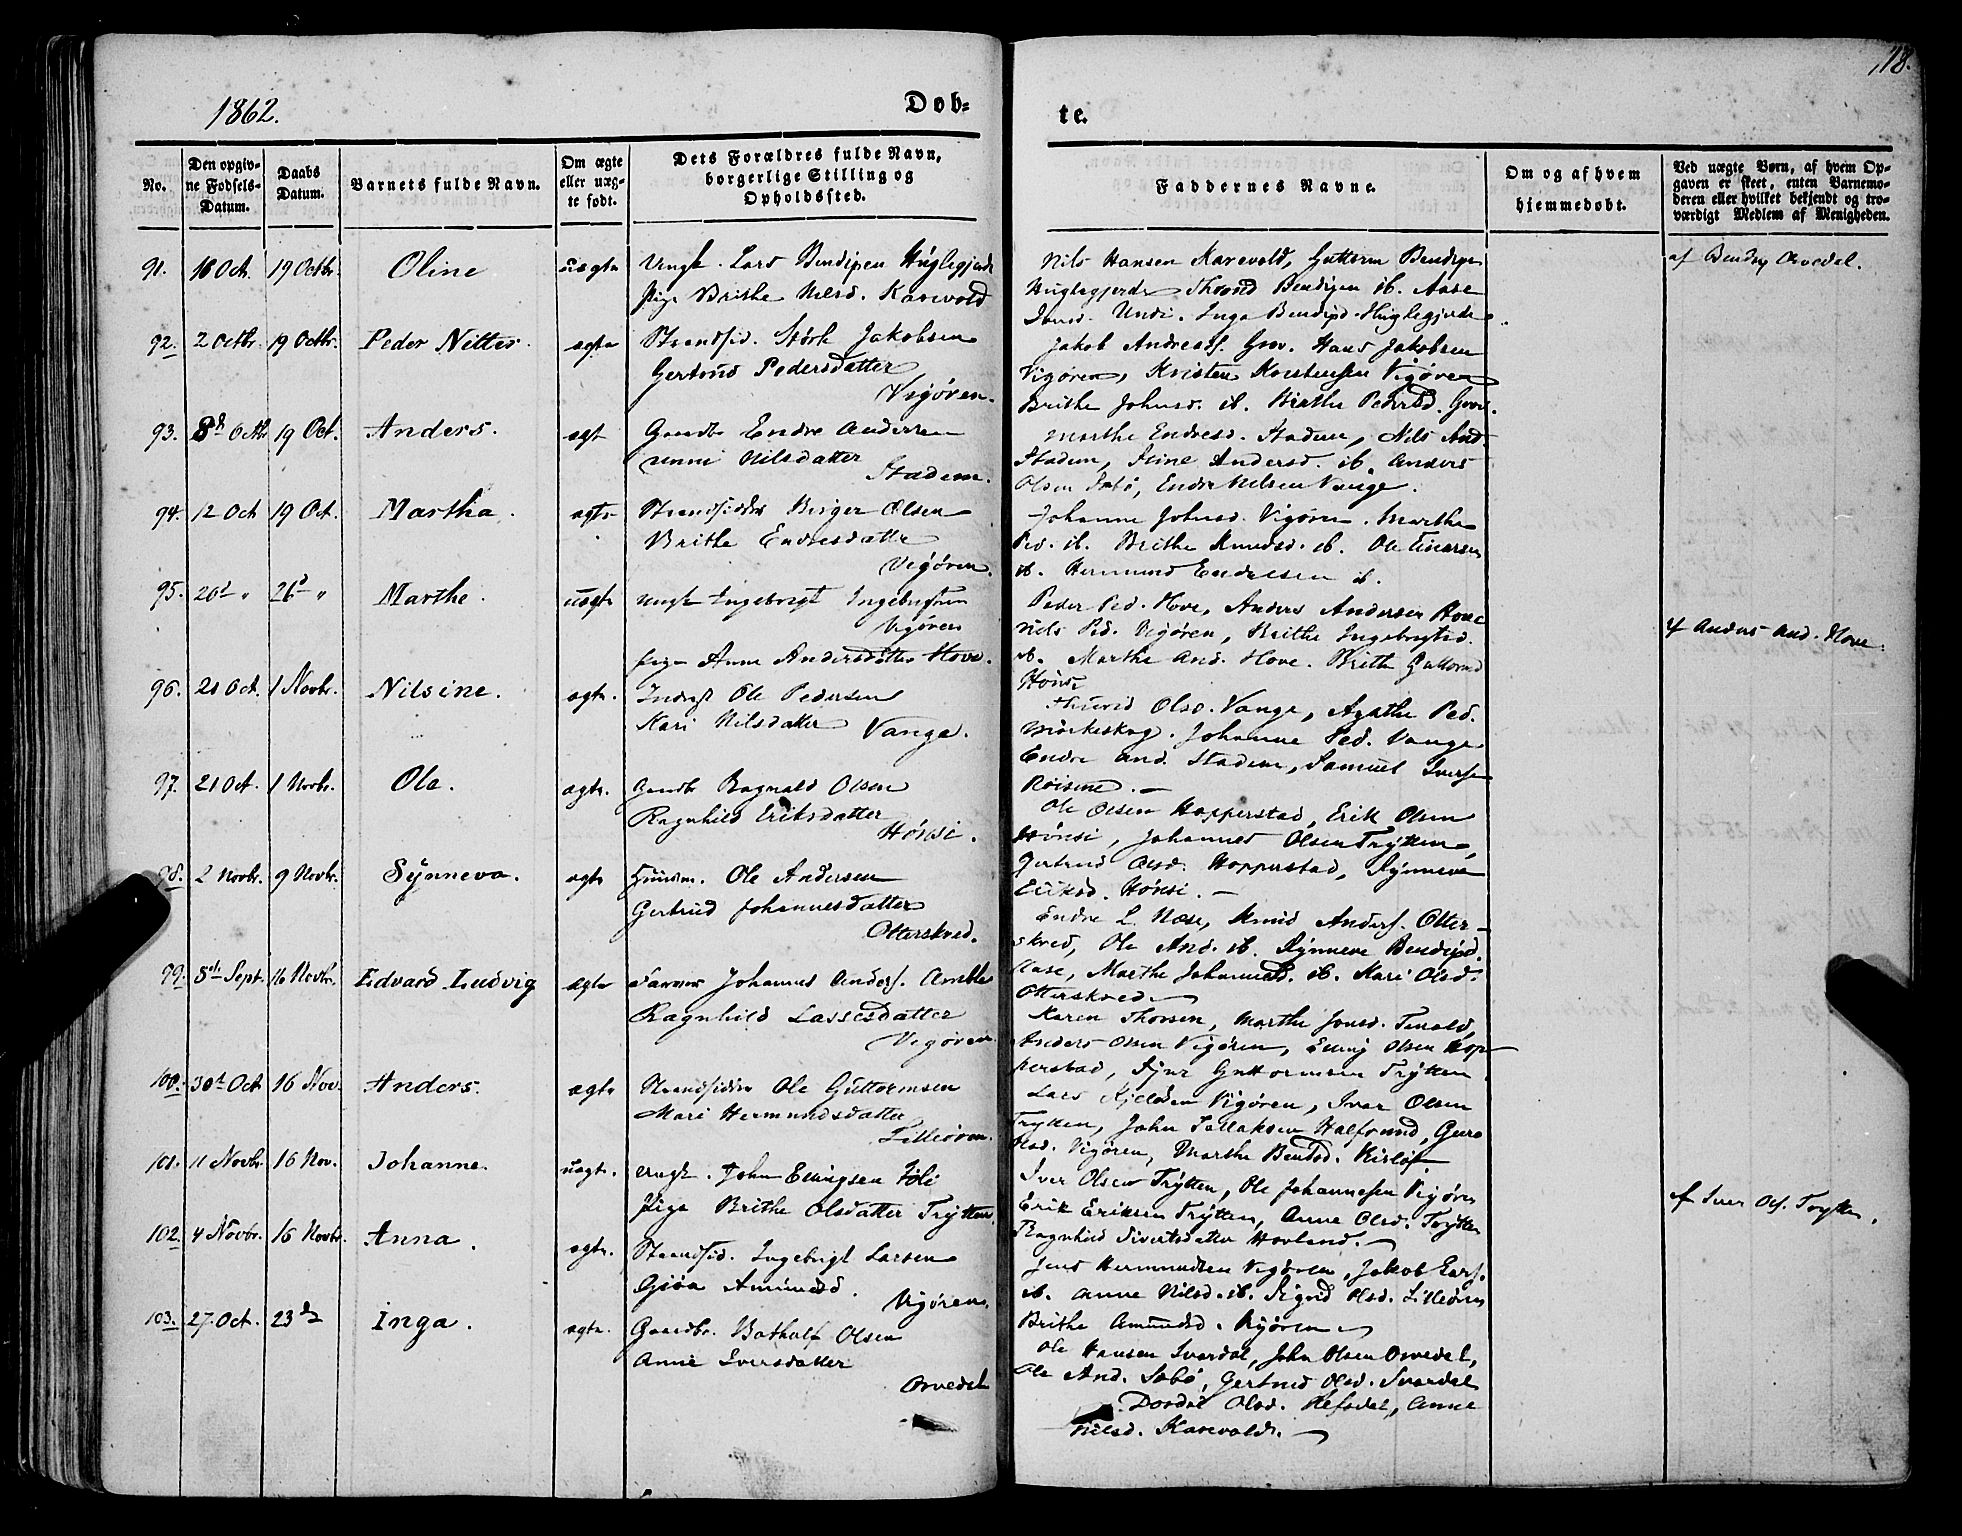 118.
1862.
Døb-
te.
No.
Den opgiv-
ne Fødsels-
Datum.
Daabs
Datum.
Barnets fulde Navn.
Om ægte
eller uæg-
te født.
Dets Forældres fulde Navn,
borgerlige Stilling og
Opholdssted.
Faddernes Navne.
Om og af hvem
hjemmedøbt.
Ved uægte Børn, af hvem Op-
gaven er skeet, enten Barnemo-
deren eller hvilket bekjendt og tro-
værdigt Medlem af Menigheden.
91. 18 Oct. 19 Octbr. Oline uægte Ungk. Lars Bendixen Huglegjerde
Pige Brithe Nilsd. Karevold
Nils Hansen Karevold, Guttorm Bendixen
Huglegjerde Thrond Bendixen ib. Aase
Jonsd. Undi. Inga Bendixd. Huglegjerde
af Bendix Orvedal.
92. 2 Octbr. 19 Octbr. Peder Nitter. ægte Strandsid. Størk Jakobsen
Gertrud Pedersdatter
Vigøren.
Jakob Andreass. Grov. Hans Jakobsen
Vigøren, Kristen Karstensen Vigøren
Brithe Johnsd. ib. Birthe Pedersd. Grov.
93. 8d Octb 19 Oct. Anders. ægt Gaardbr Endre Andersen
Unni Nilsdatter
Stadem.
Marthe Endresd. Stadem, Nils And.
Stadem, Stine Andersd. ib. Anders
Olsen Sæbø, Endre Nilsen Vange.
94. 12 Oct 19 Oct. Martha. ægte Strandsidder Birger Olsen
Brithe Endresdatter
Vigøren.
Johanne Johnsd. Vigøren. Marthe
Ped. ib. Brithe Knudsd. ib. Ole Einarsen
ib. Hermund Endresen ib.
95. 20d " 26d " Marthe. uægte Ungk Ingebrigt Ingebrigtsen
Vigøren
pige Anne Andersdatter Hove.
Peder Ped. Hove, Anders Andersen Hove
Nils Pd. Vigøren, Brithe Ingebrigtsd.
ib. Marthe And. Hove. Brithe Guttormsd
Hove.
af Anders And. Hove.
96. 20 Oct. 1 Novbr. Nilsine. ægte. Inderst Ole Pedersen
Kari Nilsdatter Vange.
Olsd. Vange, Agathe Ped.
Mørkeskog. Johanne Ped. Vange
Endre And. Stadem, Samuel Iversen
97. 21 Oct. 1 Novbr. Ole. ægte. Gaardbr Ragnald Olsen
Ragnhild Eriksdatter
Hønsi.
Ole Olsen Hopperstad, Erik Olsen
Hønsi, Johannes Olsen Trytten,
Gertrud Olsd. Hopperstad, Synneve
Eriksd. Hønsi.
98. 2 Novbr. 9 Novbr. Synneva. ægte Huusm. Ole Andersen
Gertrud Johannesdatter
Otterskred.
Endre L. Næse, Knud Anders. Otter-
skred, Ole And. ib. Synneve Bendixd.
Nase, Marthe Johannesd. ib. Kari Olsd.
Otterskred
99. 8de Sept. 16 Novbr. Edvard Ludvig ægte Farver Johannes Anders. Amble
Ragnhild Lassesdatter
Vigøren
Karen Thorsen, Marthe Jonsd.
Anders Olsen Vigøren, Elling Olsen Hop-
perstad, Sjur Guttormsen Trytten
100. 30d Oct 16 Nov. Anders. ægte Strandsidder Ole Guttormsen
Mari Hermundsdatter
Lilleøren.
Lars Kjeldsen Vigøren, Iver Olsen
Trytten, John Sallaksen Halfsund, Guro
Olsd. Vigøren, Marthe Bendsd.
101. 11 Novbr. 16 Nov. Johanne. uægte. Ungk. John Ellingsen Føli
Pige Brithe Olsdatter Trytten.
Iver Olsen Trytten, Ole Johannesen Vigøren
Erik Eriksen Trytten, Anne Olsd. Trytten
Ragnhild Sivertsdatter Hovland.
af Iver Ols. Trytten.
102. 4 Novbr. 16 Novbr. Anna. ægte. Strandsid. Ingebrigt Larsen
Gjøa Amundsd.
Vigøren.
Jens Hermundsen Vigøren, Jakob Lars.
ib. Anne Nilsd. ib. Sigrid Olsd. Lilleøren
Brithe Amundsd. Vigøren.
103. 27. Oct. 23d Inga. ægte. Gaardbr. Botholf Olsen
Anne Iversdatter
Orvedal
Ole Hansen Svardal, John Olsen Orvedal,
Ole And. Sæbø, Gertrud Olsd. Svardal
Dordei Olsd. Refsdal, Anne
Nilsd. Karevold.